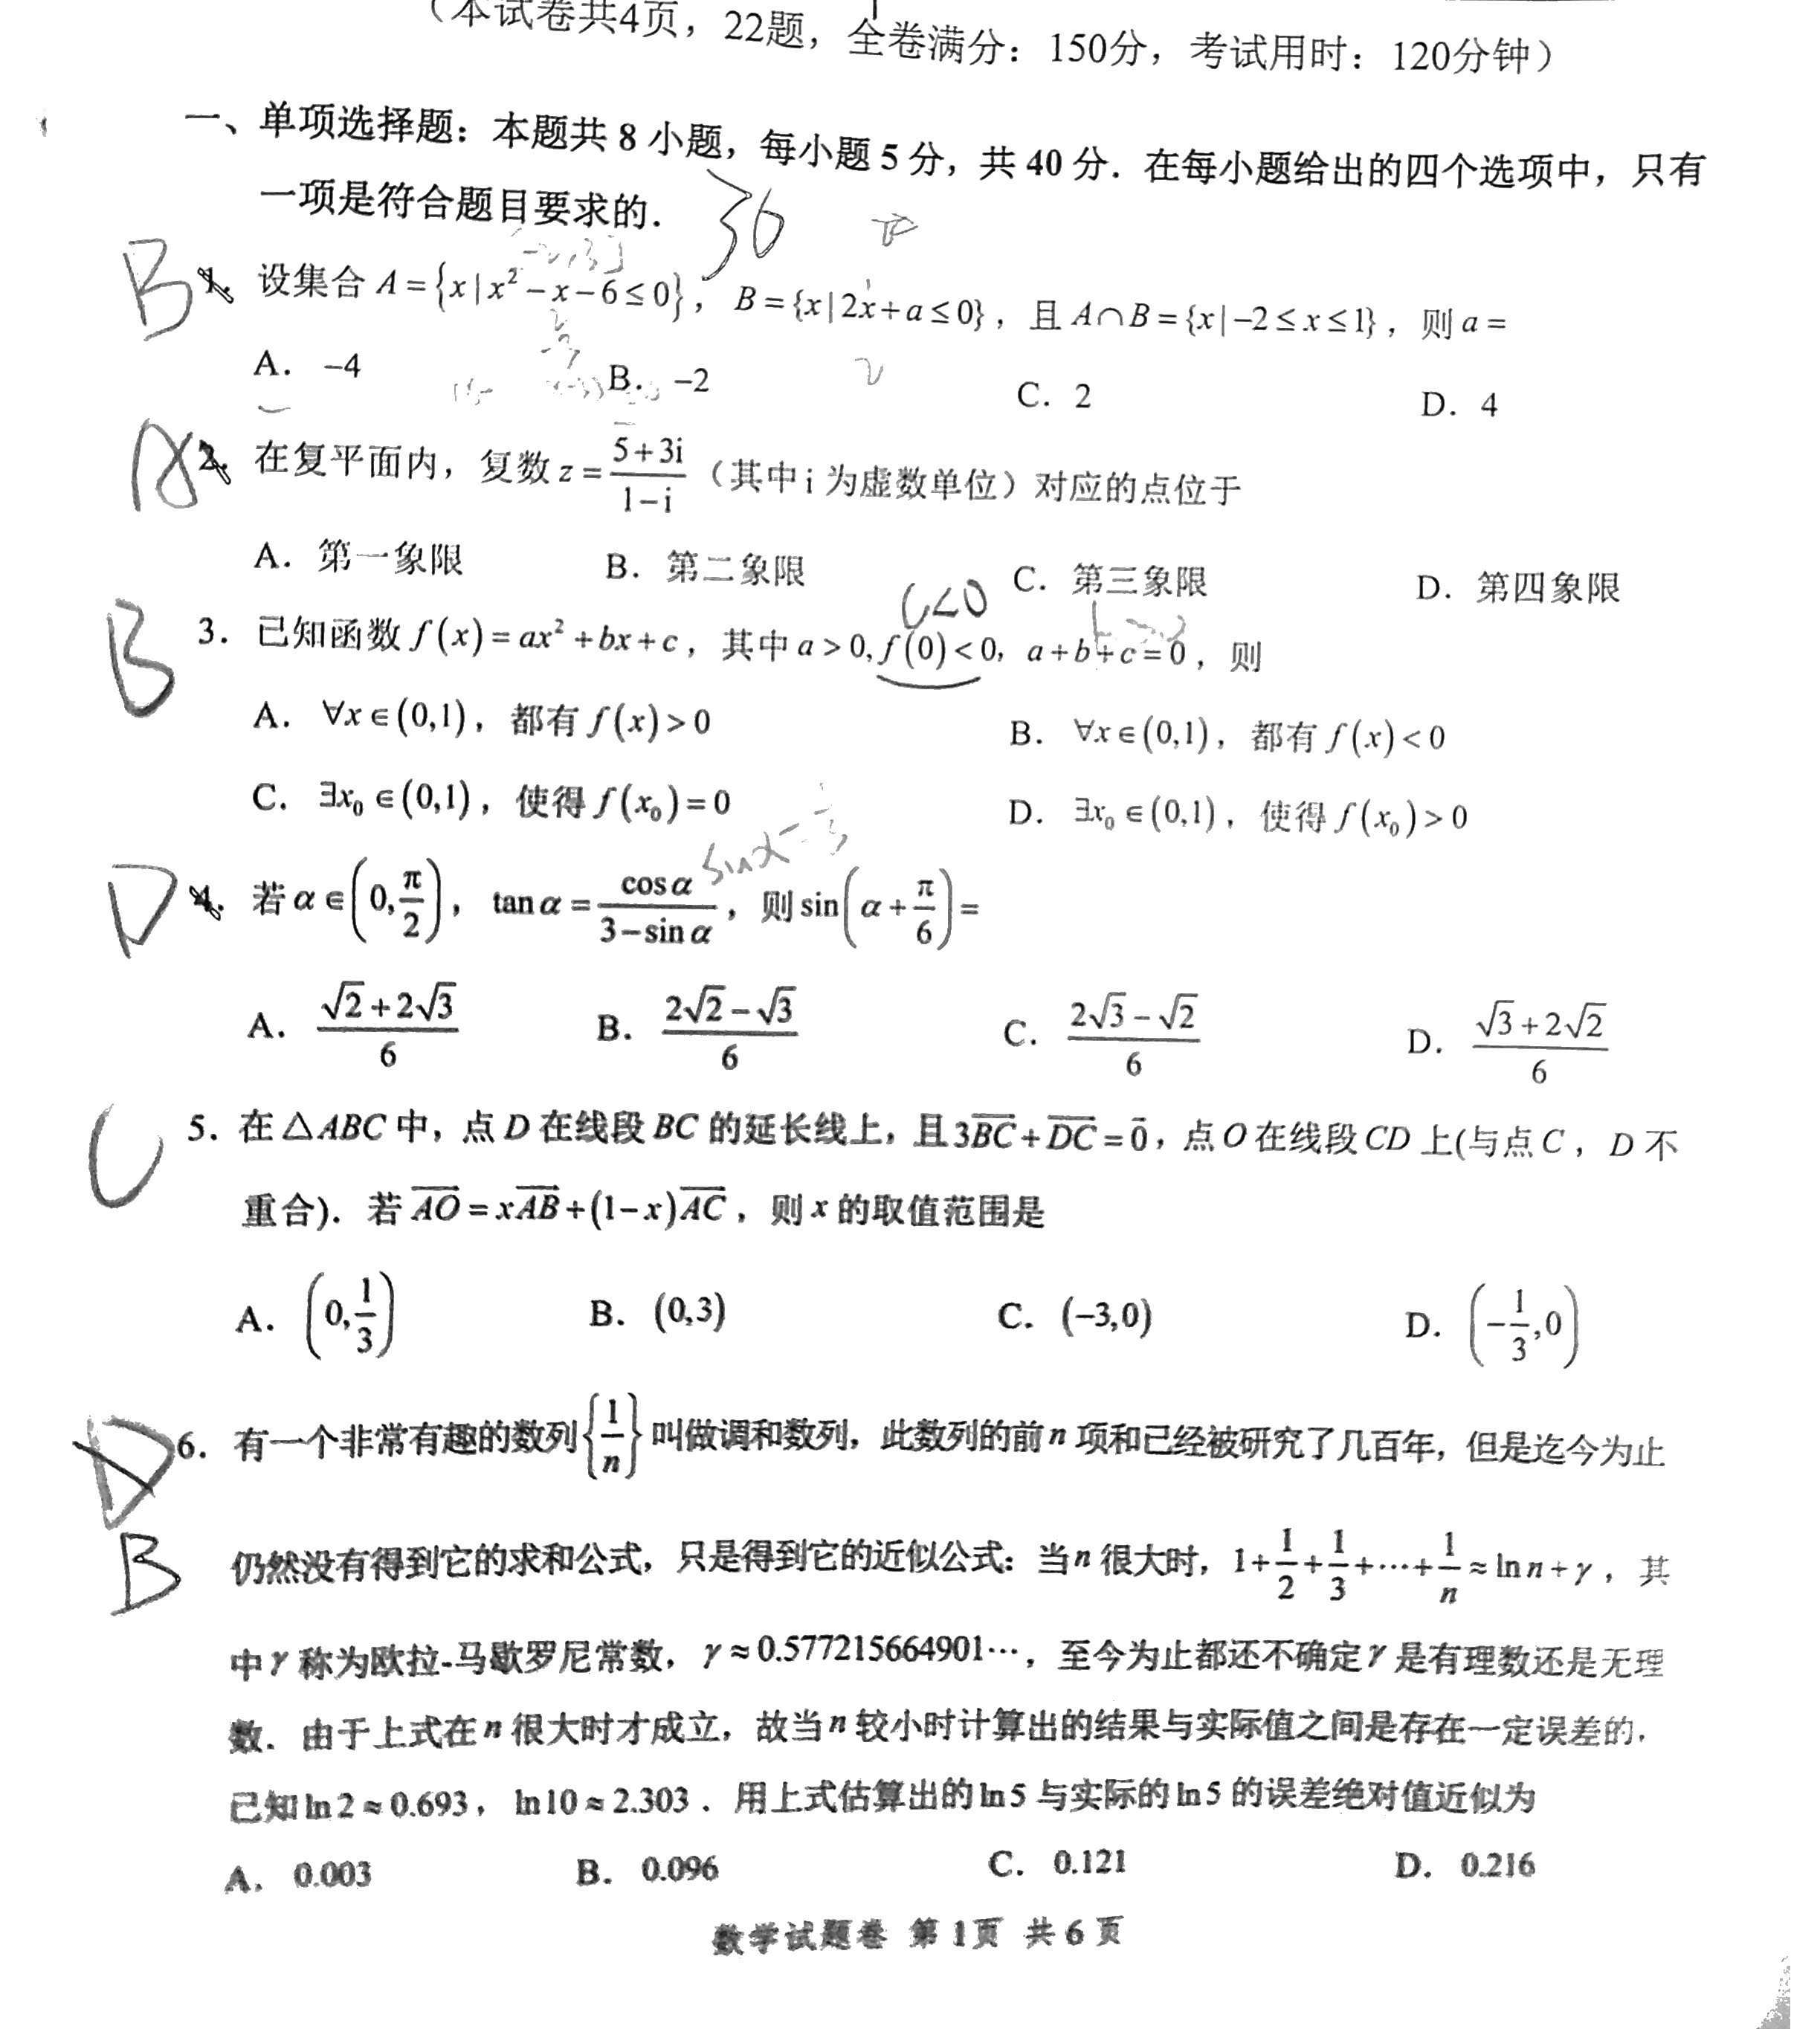 （本试卷共4页，22题，全卷满分：150分，考试用时：120分钟）
一、单项选择题：本题共 8 小题，每小题 5 分，共 40 分．在每小题给出的四个选项中，只有
一项是符合题目要求的．
36
B 1. 设集合 A={x|x²−x−6≤0}，B={x|2x+a≤0}，且 A∩B={x|−2≤x≤1}，则 a=
A． −4 B． −2 C．2 D．4
A 2. 在复平面内，复数 z=(5+3i)/(1−i)（其中 i 为虚数单位）对应的点位于
A．第一象限 B．第二象限 C．第三象限 D．第四象限
c<0
B 3．已知函数 f(x)=ax²+bx+c，其中 a>0, f(0)<0, a+b+c=0，则
A． ∀x∈(0,1)，都有 f(x)>0 B． ∀x∈(0,1)，都有 f(x)<0
C． ∃x₀∈(0,1)，使得 f(x₀)=0 D． ∃x₀∈(0,1)，使得 f(x₀)>0
D 4. 若 α∈(0,π/2)， tanα=cosα/(3−sinα)，则 sin(α+π/6)=
A． (√2+2√3)/6 B． (2√2−√3)/6 C． (2√3−√2)/6 D． (√3+2√2)/6
C 5．在 △ABC 中，点 D 在线段 BC 的延长线上，且 3BC+DC=0，点 O 在线段 CD 上(与点 C ，D 不
重合)．若 AO=xAB+(1−x)AC，则 x 的取值范围是
A． (0,1/3) B．(0,3) C．(−3,0) D． (−1/3,0)
6．有一个非常有趣的数列{1/n}叫做调和数列，此数列的前 n 项和已经被研究了几百年，但是迄今为止
B 仍然没有得到它的求和公式，只是得到它的近似公式：当 n 很大时，1+1/2+1/3+⋯+1/n≈ln n+γ，其
中 γ 称为欧拉-马歇罗尼常数，γ≈0.577215664901⋯，至今为止都还不确定 γ 是有理数还是无理
数．由于上式在 n 很大时才成立，故当 n 较小时计算出的结果与实际值之间是存在一定误差的，
已知 ln2≈0.693，ln10≈2.303．用上式估算出的 ln5 与实际的 ln5 的误差绝对值近似为
A．0.003 B．0.096 C．0.121 D．0.216
数学试题卷 第 1页 共 6 页